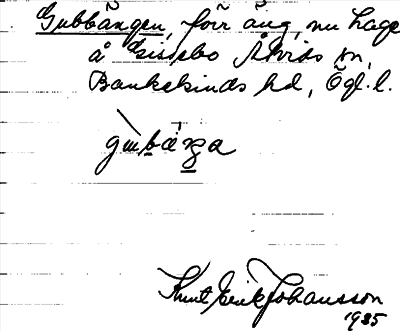 Gubbängen, förr äng, nu hage
å Gisslebo Åtvids sn,
Bankekinds hd, Ögl. l.
Knut Erik Johansson
1935